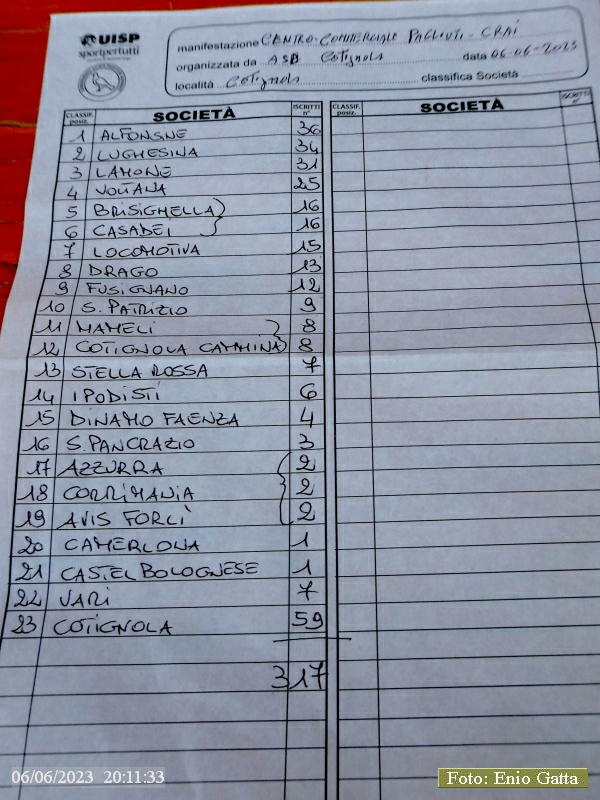 UISP
sportpertutti
manifestazione CENTRO-COMMERCIALE PAGLIUTI-CRAI
organizzata da ASD Cotignola data 06-06-2023
località Cotignola classifica Società
CLASSIF. posiz. SOCIETÀ ISCRITTI n° CLASSIF. posiz. SOCIETÀ ISCRITTI n°
1 ALFONSNE 36
2 LUGHESINA 34
3 LAMONE 31
4 VOLTANA 25
5 BRISIGHELLA 16
6 CASADEI 16
7 LOCOMOTIVA 15
8 DRAGO 13
9 FUSIGNANO 12
10 S. PATRIZIO 9
11 MAMELI 8
12 COTIGNOLA CAMMINA 8
13 STELLA ROSSA 7
14 IPODISTI 6
15 DINAMO FAENZA 4
16 S. PANCRAZIO 3
17 AZZURRA 2
18 CORRIMANIA 2
19 AVIS FORLÌ 2
20 CAMERLONA 1
21 CASTEL BOLOGNESE 1
22 VARI 7
23 COTIGNOLA 59
317
06/06/2023 20:11:33
Foto: Enio Gatta